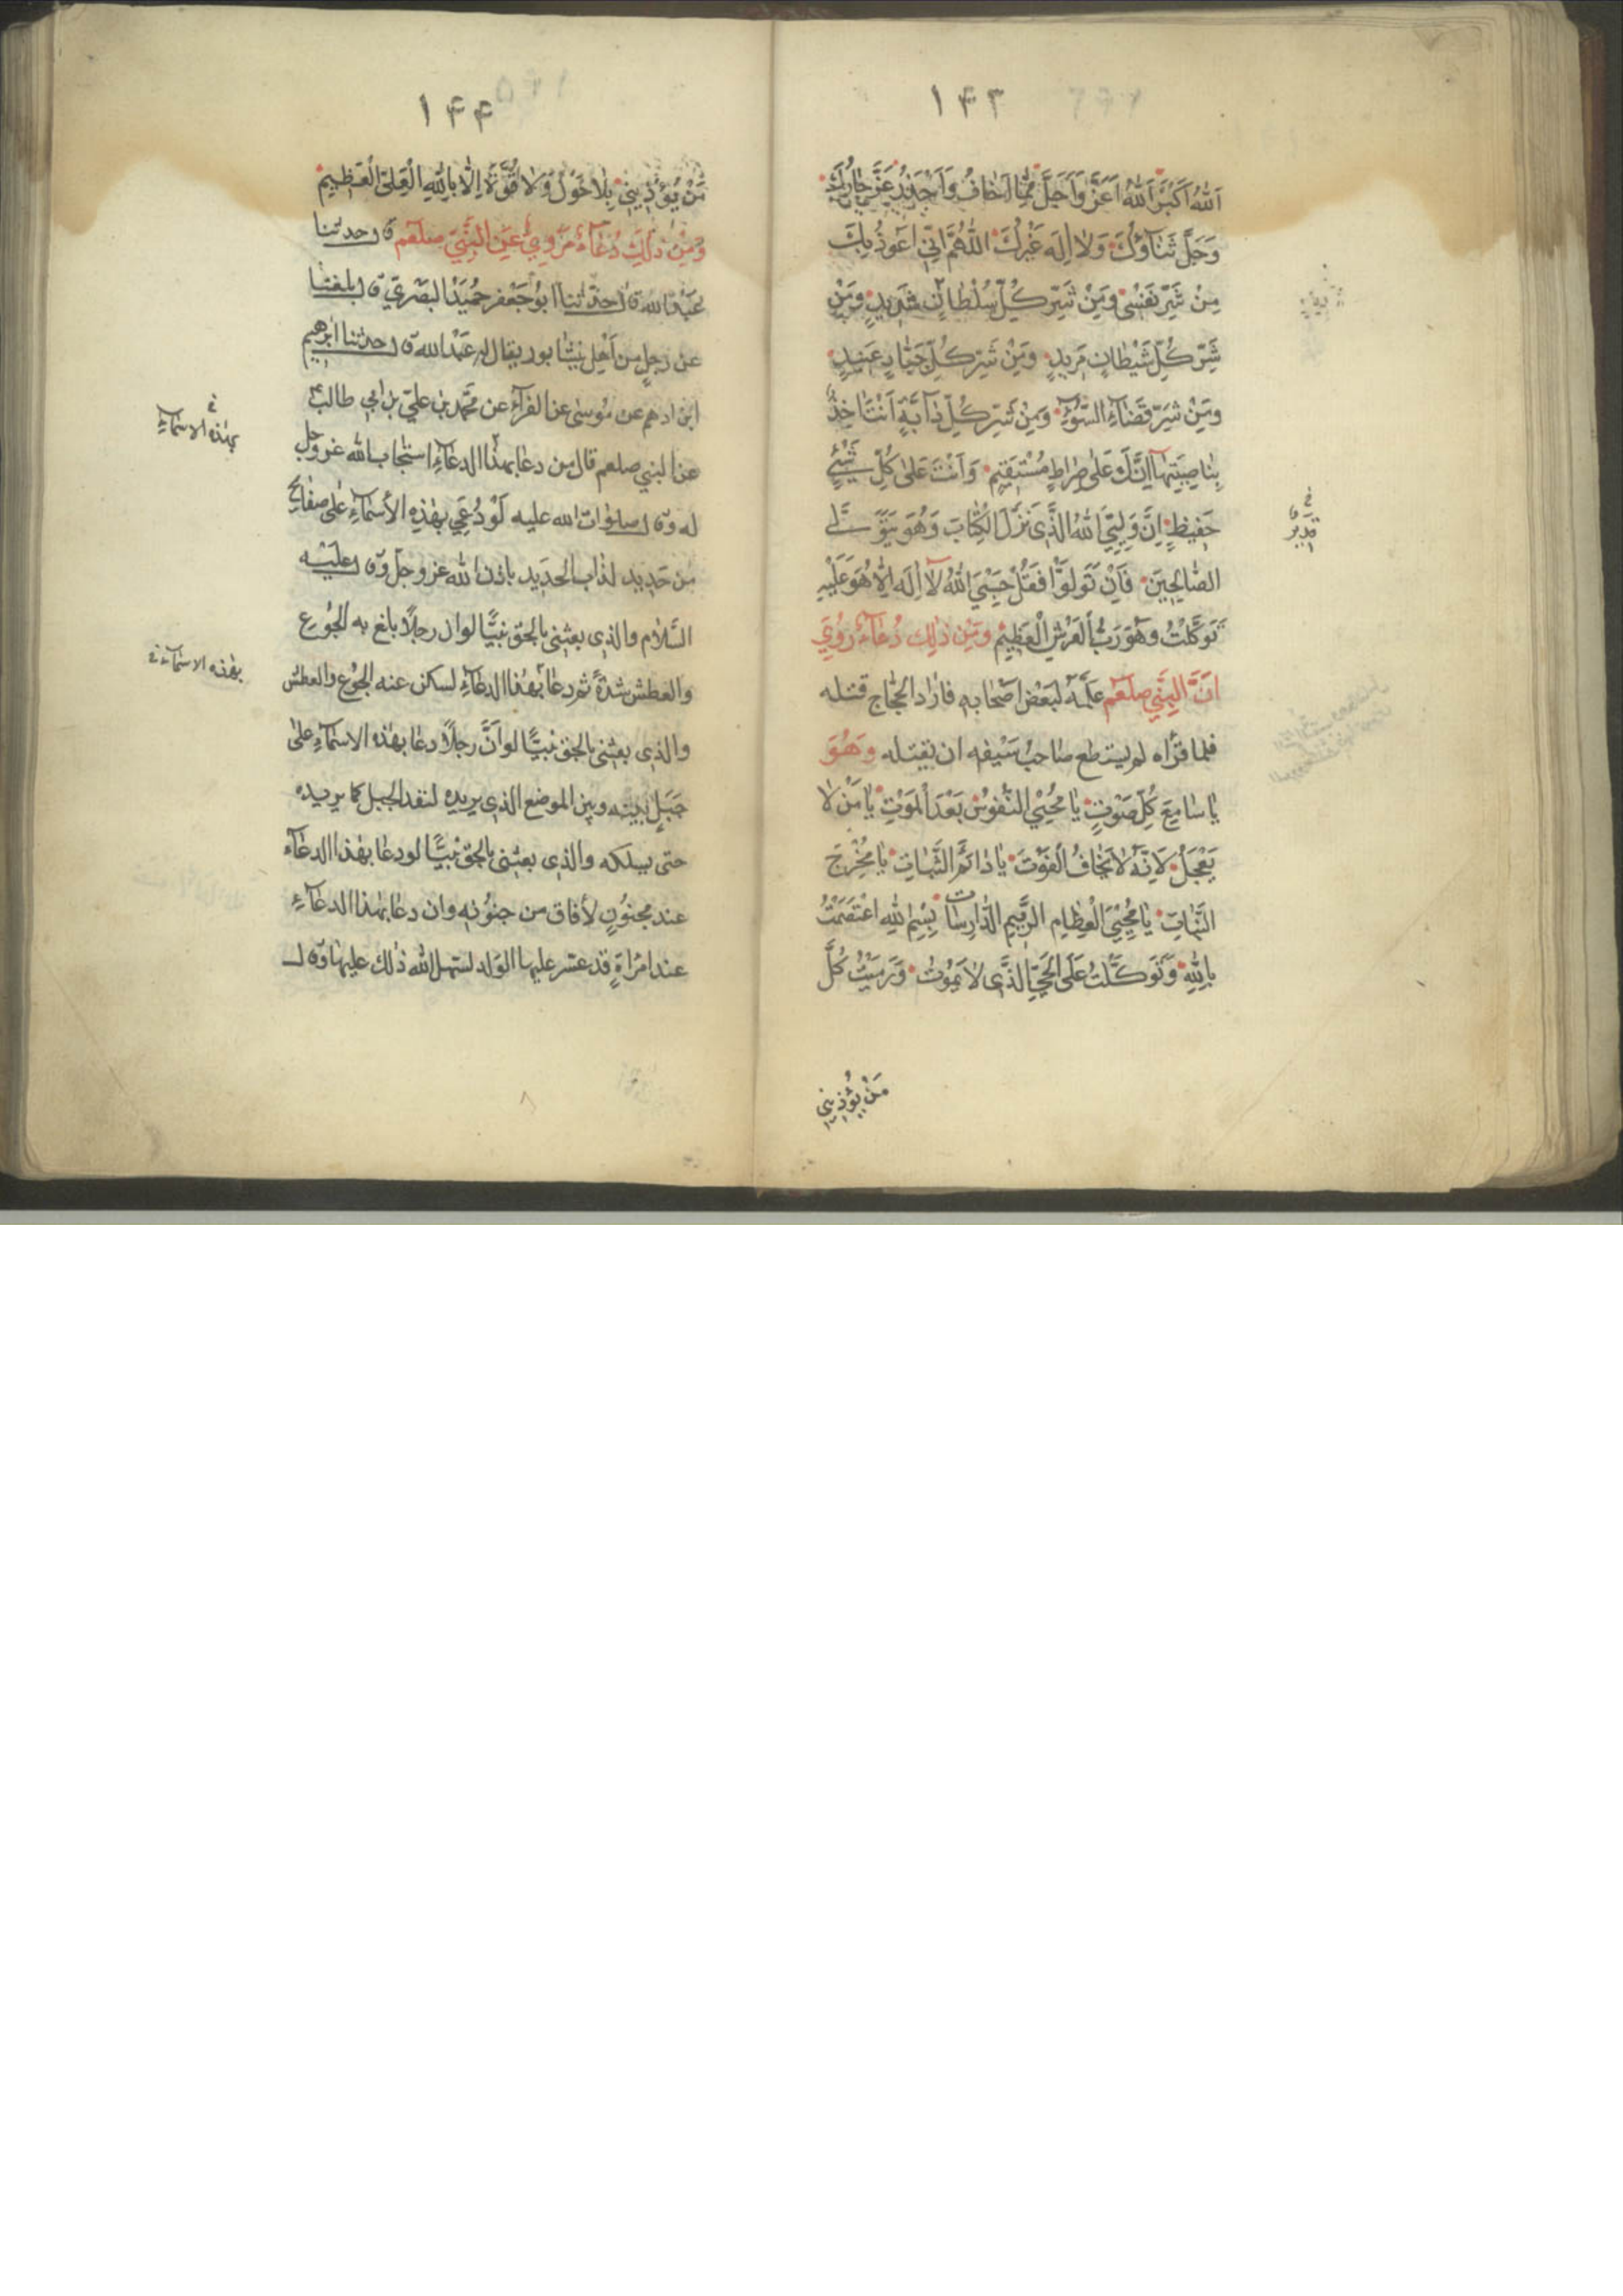 ١٤٣
اَللّٰهُ اَكْبَرُ اَللّٰهُ اَعَزُّ وَاَجَلُّ مِمَّا اَخَافُ وَاَحْذَرُ عَزَّ جَارُكَ
وَجَلَّ ثَنَاؤُكَ وَلَا اِلٰهَ غَيْرُكَ اللّٰهُمَّ اِنّى اَعُوذُ بِكَ
مِنْ شَرِّ نَفْسِى وَمِنْ شَرِّ كُلِّ سُلْطَانٍ شَدِيدٍ وَمِنْ
شَرِّ كُلِّ شَيْطَانٍ مَرِيدٍ وَمِنْ شَرِّ كُلِّ جَبَّارٍ عَنِيدٍ
وَمِنْ شَرِّ قَضَاءِ السُّوءِ وَمِنْ شَرِّ كُلِّ دَآبَّةٍ اَنْتَ اٰخِذٌ
بِنَاصِيَتِهَا اِنَّكَ عَلٰى صِرَاطٍ مُسْتَقِيمٍ وَاَنْتَ عَلٰى كُلِّ شَيْءٍ
حَفِيظٌ اِنَّ وَلِيِّيَ اللّٰهُ الَّذِى نَزَّلَ الْكِتَابَ وَهُوَ يَتَوَلَّى
الصَّالِحِينَ فَاِنْ تَوَلَّوْا فَقُلْ حَسْبِيَ اللّٰهُ لَا اِلٰهَ اِلَّا هُوَ عَلَيْهِ
تَوَكَّلْتُ وَهُوَ رَبُّ الْعَرْشِ الْعَظِيمِ وَمِنْ ذٰلِكَ دُعَاءٌ رُوِيَ
اَنَّ النَّبِيَّ صلعم عَلَّمَهُ لِبَعْضِ اَصْحَابِهِ فاراد الحجّاج قتله
فلما قرأه لم يستطع صاحب سيفه ان يقتله وَهُوَ
يَا سَامِعَ كُلِّ صَوْتٍ يَا مُحْيِيَ النُّفُوسِ بَعْدَ الْمَوْتِ يَا مَنْ لَا
يَعْجَلُ لِاَنَّهُ لَا يَخَافُ الْفَوْتَ يَا دَائِمَ الثَّبَاتِ يَا مُخْرِجَ
النَّبَاتِ يَا مُحْيِيَ الْعِظَامِ الرَّمِيمِ الدَّارِسَاتِ بِسْمِ اللّٰهِ اعْتَصَمْتُ
بِاللّٰهِ وَتَوَكَّلْتُ عَلَى الْحَيِّ الَّذِى لَا يَمُوتُ وَرَمَيْتُ كُلَّ
مَنْ يُؤْذِينِى
قدير
١٤٤
مَنْ يُؤْذِينِى بِلَا حَوْلَ وَلَا قُوَّةَ اِلَّا بِاللّٰهِ الْعَلِيِّ الْعَظِيمِ
وَمِنْ ذٰلِكَ دُعَاءٌ مَرْوِيٌّ عَنِ النَّبِيِّ صلعم قال حدثنا
عبد الله قال حدثنا ابو جعفر حميد البصرى قال بلغنا
عن رجل من اهل نيشابور يقال له عبد الله قال حدثنا ابرهيم
ابن ادهم عن موسى عن الفراء عن محمد بن على بن ابى طالب
عن النبى صلعم قال من دعا بهذا الدعاء استجاب الله عز وجل
له وقال صلوات الله عليه لَوْ دُعِيَ بِهٰذِهِ الْاَسْمَاءِ على صفائح
من حديد لذاب الحديد باذن الله عز وجل وقال عليه
السلام والذى بعثنى بالحق نبيّا لو ان رجلًا بلغ به الجوع
والعطش شدةً ثم دعا بهذا الدعاء لسكن عنه الجوع والعطش
والذى بعثنى بالحق نبيّا لو انّ رجلًا دعا بهذه الاسماء على
جبلٍ بينه وبين الموضع الذى يريده لنفد الجبل كما يريده
حتى يسلكه والذى بعثنى بالحق نبيّا لو دعا بهذا الدعاء
عند مجنونٍ لأفاق من جنونه وان دعا بهذا الدعاء
عند امرأةٍ قد عسر عليها الولد لسهل الله ذلك عليها وقال
بهذه الاسماء
بهذه الاسماء